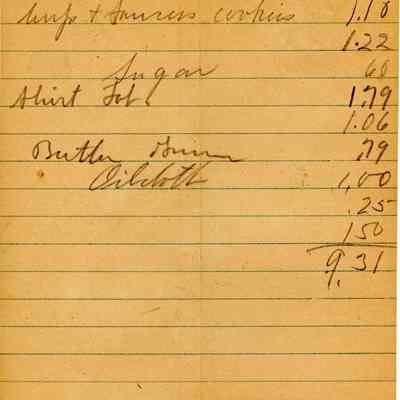 cookies 1.10
1.22
Sugar 60
Shirt 1.79
1.06
Butter .79
Oilcloth 1,00
.25
150
9.31